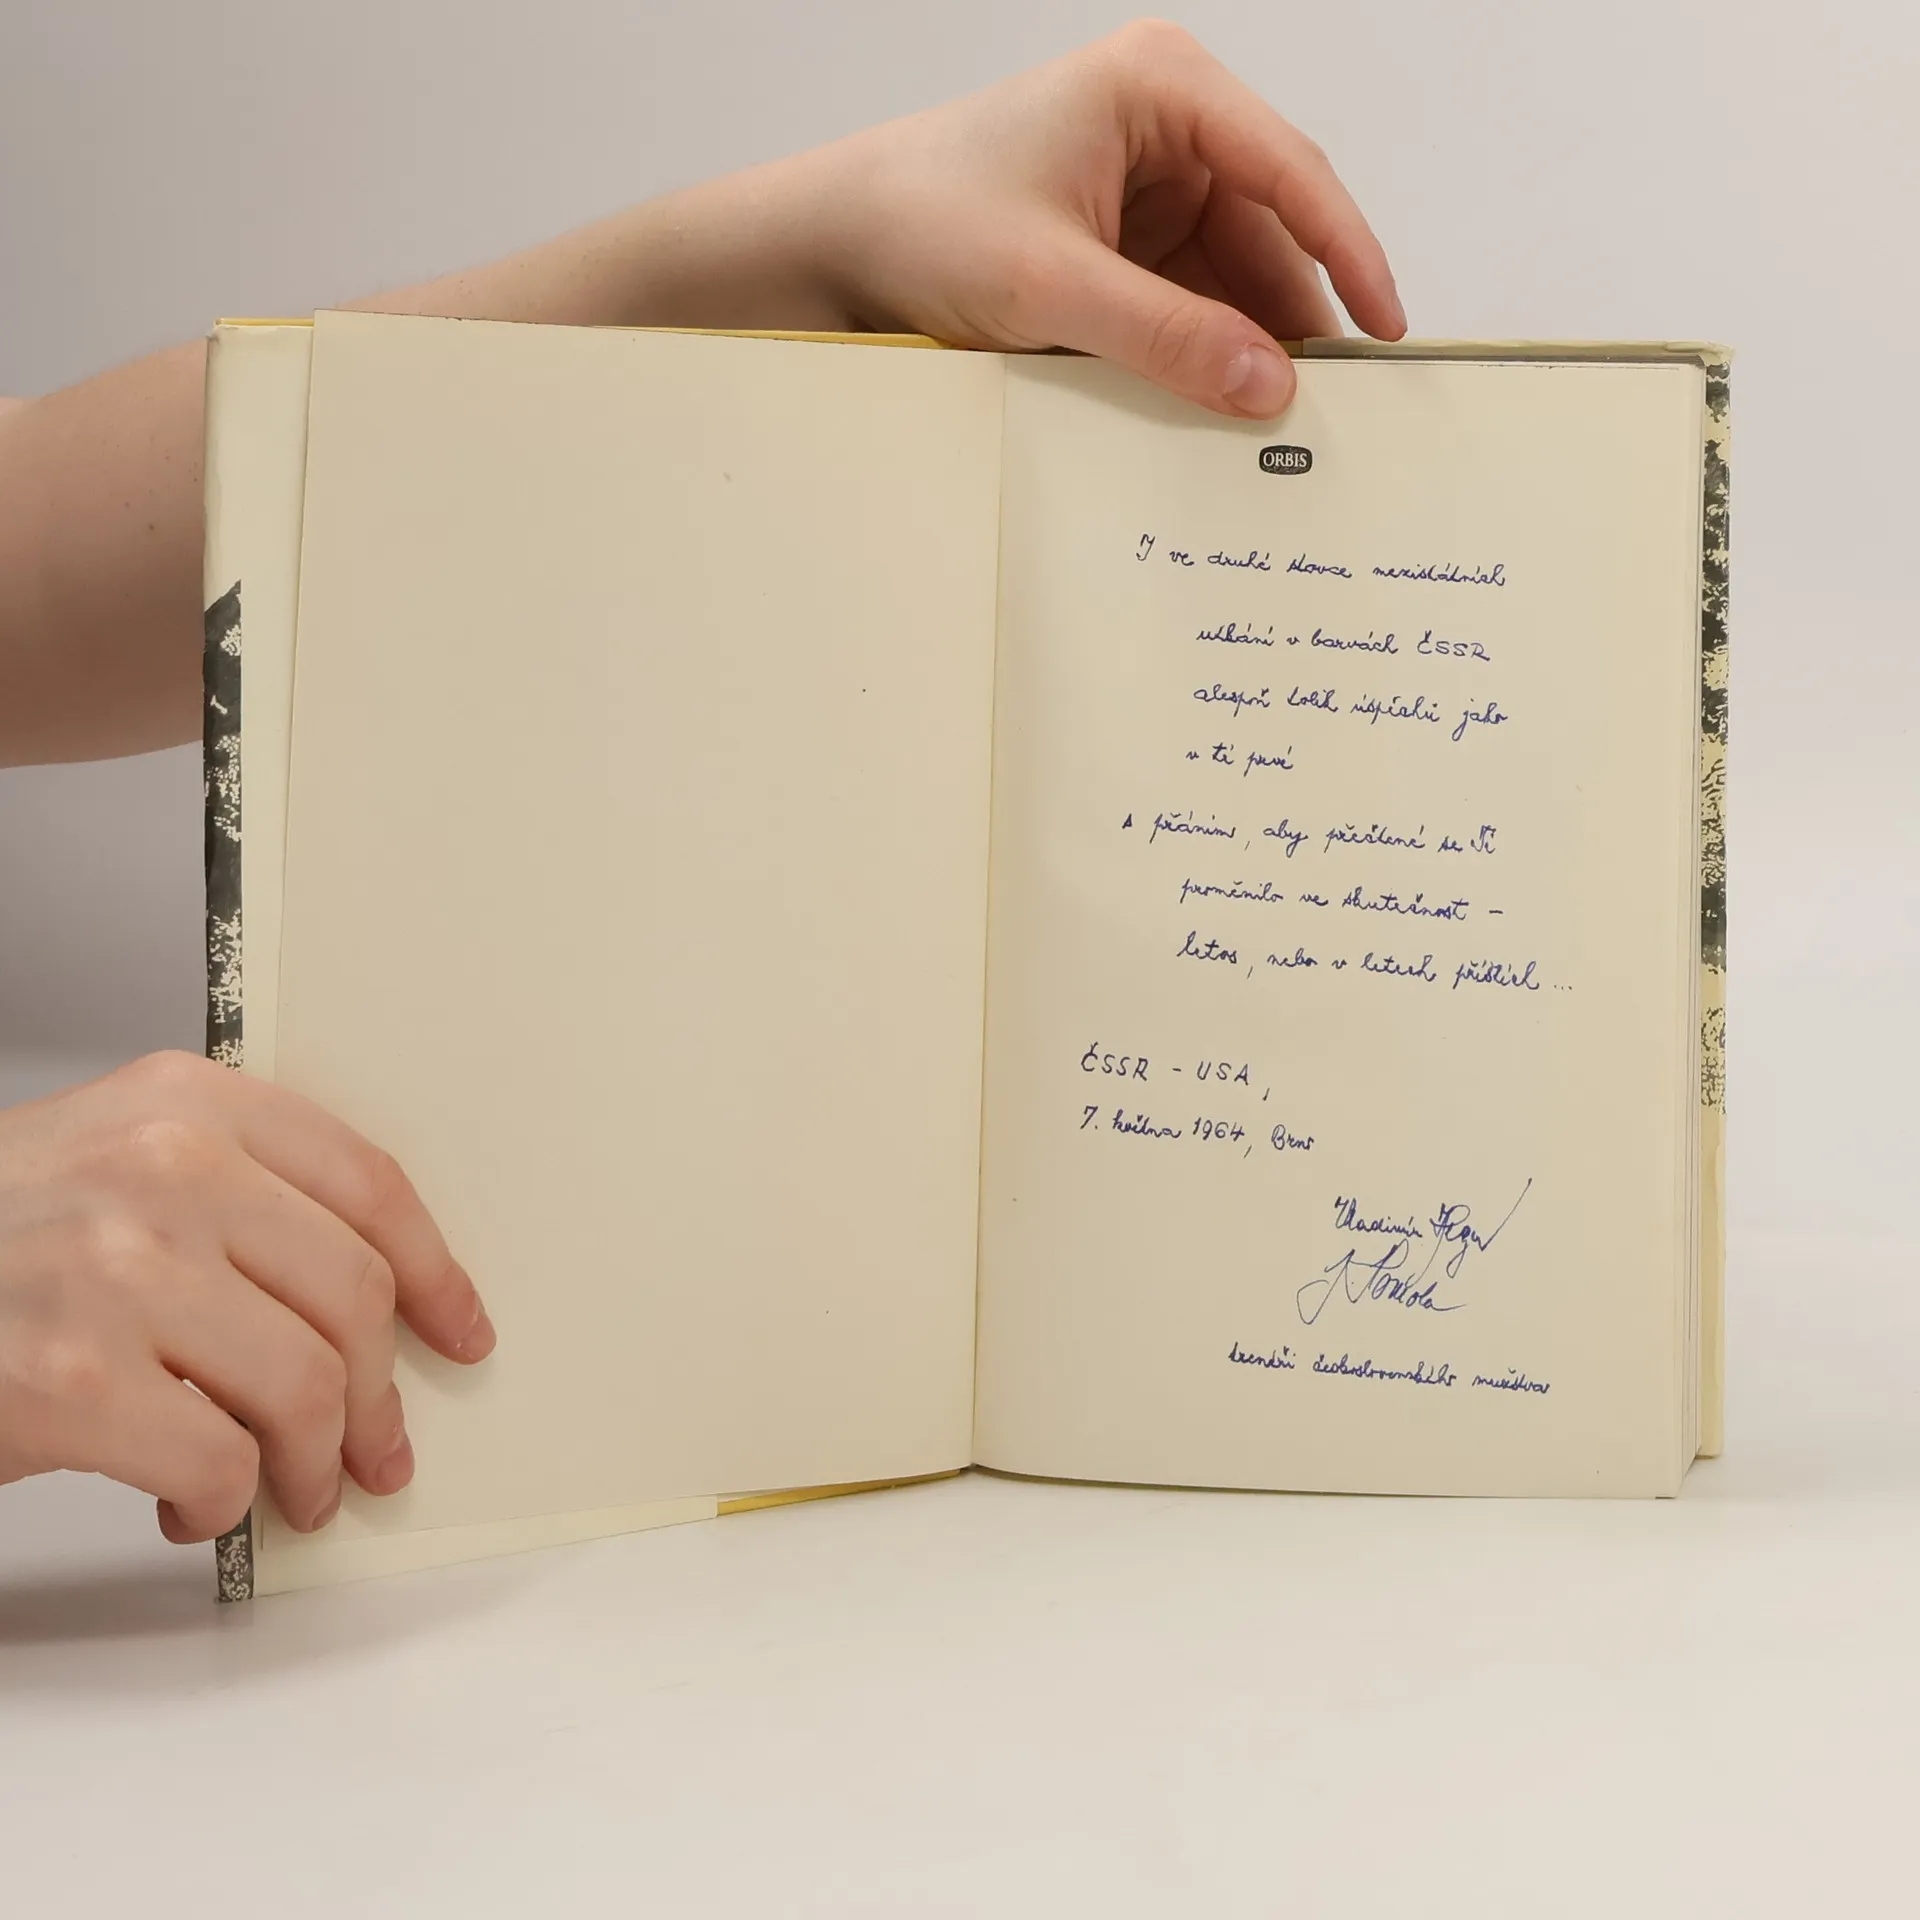 ORBIS
I ve druhé stovce mezistátních
utkání v barvách ČSSR
alespoň tolik úspěchů jako
v té prvé
s přáním, aby přečtené se Ti
proměnilo ve skutečnost –
letos, nebo v letech příštích ...
ČSSR - USA,
7. května 1964, Brno
Vladimír Heger
trenéři československého mužstva